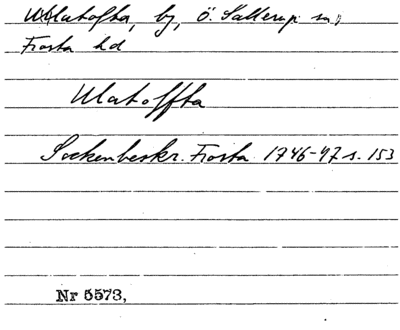 Ulatofta, by, Ö. Sallerup sn,
Frosta hd
Ulatoffta
Sockenbeskr. Frosta 1746-47 s. 153
Nr 5573,